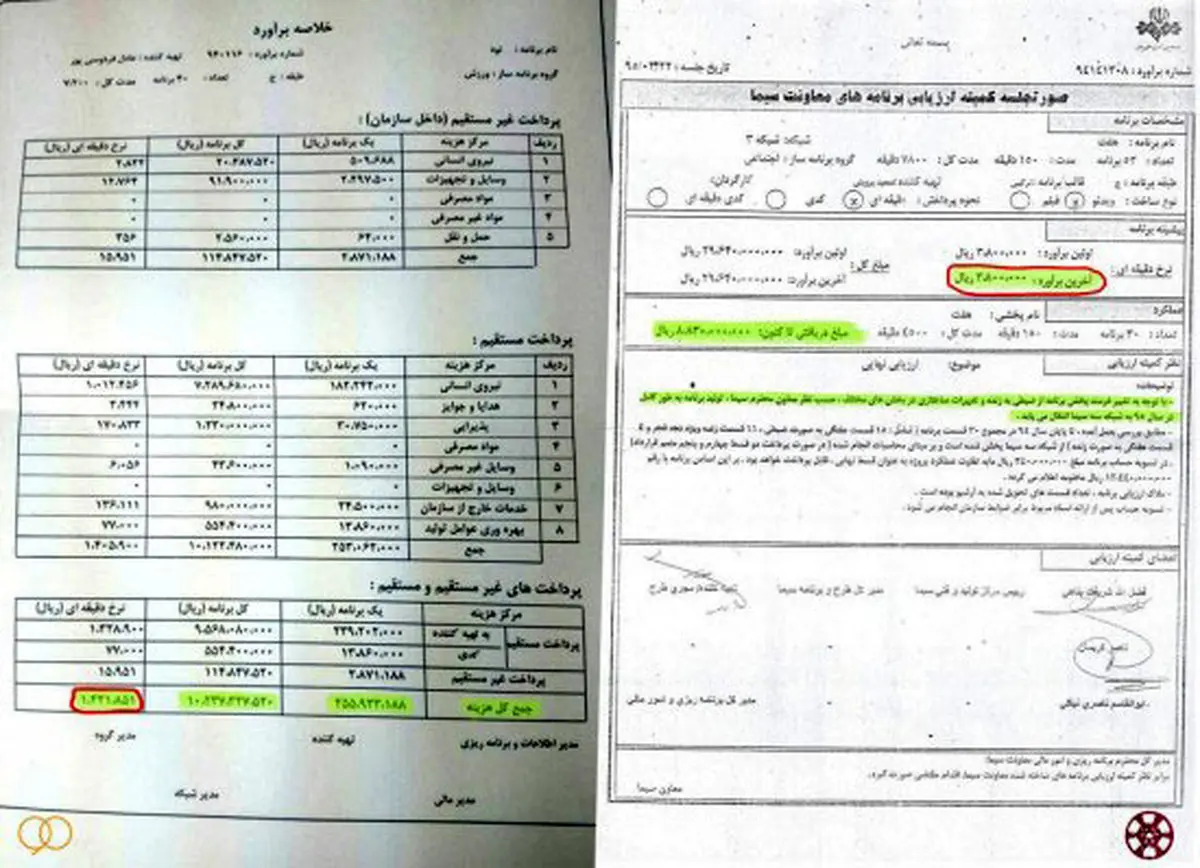 خلاصه برآورد
نام برنامه : نود
شماره برآورد : ۹۴۰۱۱۶
تهیه کننده : عادل فردوسی پور
گروه برنامه ساز : ورزش
طبقه : ج
تعداد : ۴۰ برنامه
مدت کل : ۷/۲۰۰
پرداخت غیر مستقیم (داخل سازمان) :
ردیف مرکز هزینه یک برنامه (ریال) کل برنامه (ریال) نرخ دقیقه ای (ریال)
۱ نیروی انسانی ۵۰۹.۶۸۸ ۲۰.۳۸۷.۵۲۰ ۲.۸۳۲
۲ وسایل و تجهیزات ۲.۲۹۷.۵۰۰ ۹۱.۹۰۰.۰۰۰ ۱۲.۷۶۴
۳ مواد مصرفی ۰ ۰ ۰
۴ مواد غیر مصرفی ۰ ۰ ۰
۵ حمل و نقل ۶۴.۰۰۰ ۲.۵۶۰.۰۰۰ ۳۵۶
جمع ۲.۸۷۱.۱۸۸ ۱۱۴.۸۴۷.۵۲۰ ۱۵.۹۵۱
پرداخت مستقیم :
ردیف مرکز هزینه یک برنامه (ریال) کل برنامه (ریال) نرخ دقیقه ای (ریال)
۱ نیروی انسانی ۱۸۲.۲۴۲.۰۰۰ ۷.۲۸۹.۶۸۰.۰۰۰ ۱.۰۱۲.۴۵۶
۲ هدایا و جوایز ۶۲۰.۰۰۰ ۲۴.۸۰۰.۰۰۰ ۳.۴۴۴
۳ پذیرایی ۳۰.۷۵۰.۰۰۰ ۱.۲۳۰.۰۰۰.۰۰۰ ۱۷۰.۸۳۳
۴ مواد مصرفی ۰ ۰ ۰
۵ وسایل غیر مصرفی ۱.۰۹۰.۰۰۰ ۴۳.۶۰۰.۰۰۰ ۶.۰۵۶
۶ وسایل و تجهیزات ۰ ۰ ۰
۷ خدمات خارج از سازمان ۲۴.۵۰۰.۰۰۰ ۹۸۰.۰۰۰.۰۰۰ ۱۳۶.۱۱۱
۸ بهره وری عوامل تولید ۱۳.۸۶۰.۰۰۰ ۵۵۴.۴۰۰.۰۰۰ ۷۷.۰۰۰
جمع ۲۵۳.۰۶۲.۰۰۰ ۱۰.۱۲۲.۴۸۰.۰۰۰ ۱.۴۰۵.۹۰۰
پرداخت های غیر مستقیم و مستقیم :
مرکز هزینه یک برنامه (ریال) کل برنامه (ریال) نرخ دقیقه ای (ریال)
پرداخت مستقیم به تهیه کننده ۲۳۹.۲۰۲.۰۰۰ ۹.۵۶۸.۰۸۰.۰۰۰ ۱.۳۲۸.۹۰۰
کدی ۱۳.۸۶۰.۰۰۰ ۵۵۴.۴۰۰.۰۰۰ ۷۷.۰۰۰
پرداخت غیر مستقیم ۲.۸۷۱.۱۸۸ ۱۱۴.۸۴۷.۵۲۰ ۱۵.۹۵۱
جمع کل هزینه ۲۵۵.۹۳۳.۱۸۸ ۱۰.۲۳۷.۳۲۷.۵۲۰ ۱.۴۲۱.۸۵۱
مدیر اطلاعات و برنامه ریزی تهیه کننده مدیر گروه
مدیر مالی مدیر شبکه
بسمه تعالی
شماره برآورد : ۹۴۱۴۱۳۰۸
تاریخ جلسه :
صورتجلسه کمیته ارزیابی برنامه های معاونت سیما
مشخصات برنامه
نام برنامه : هفت شبکه: شبکه ۳
تعداد : ۵۲ برنامه مدت : ۱۵۰ دقیقه مدت کل : ۷۸۰۰ دقیقه گروه برنامه ساز : اجتماعی
طبقه برنامه : ج قالب برنامه : ترکیبی تهیه کننده : کارگردان:
نوع ساخت : ویدئو فیلم نحوه پرداختی : دقیقه ای کدی کدی دقیقه ای
پیشینه برنامه
نرخ دقیقه ای : اولین برآورد : ۳.۸۰۰.۰۰۰ ریال
آخرین برآورد : ۳.۸۰۰.۰۰۰ ریال
مبلغ کل : اولین برآورد: ۲۹.۶۴۰.۰۰۰.۰۰۰ ریال
آخرین برآورد: ۲۹.۶۴۰.۰۰۰.۰۰۰ ریال
عملکرد
نام پخشی : هفت
تعداد : ۳۰ برنامه مدت : ۱۵۰ دقیقه مدت کل : ۴۵۰۰ دقیقه مبلغ دریافتی تا کنون: ۸.۸۳۰.۰۰۰.۰۰۰ ریال
نظر کمیته ارزیابی
موضوع: ارزیابی نهایی
توضیحات:
- با توجه به تغییر فرمت پخش برنامه از ضبطی به زنده و تغییرات ساختاری در بخش های مختلف، حسب نظر معاون محترم سیما، تولید برنامه به طور کامل
در سال ۹۵ به شبکه سه سیما انتقال می یابد.
- ملاک ارزیابی برنامه ، تعداد قسمت های تحویل شده به آرشیو بوده است .
- تسویه حساب پس از ارائه اسناد مربوط برابر ضوابط سازمان انجام می شود .
امضای کمیته ارزیابی
رییس مرکز تولید و فنی سیما مدیر کل طرح و برنامه سیما
ناصر کریمان
ابوالقاسم ناصری نیاکی مدیر کل برنامه ریزی و امور مالی
مدیر کل محترم برنامه ریزی و امور مالی معاونت سیما:
برابر نظر کمیته ارزیابی برنامه های ساخته شده معاونت سیما، اقدام مقتضی صورت گیرد.
معاون سیما